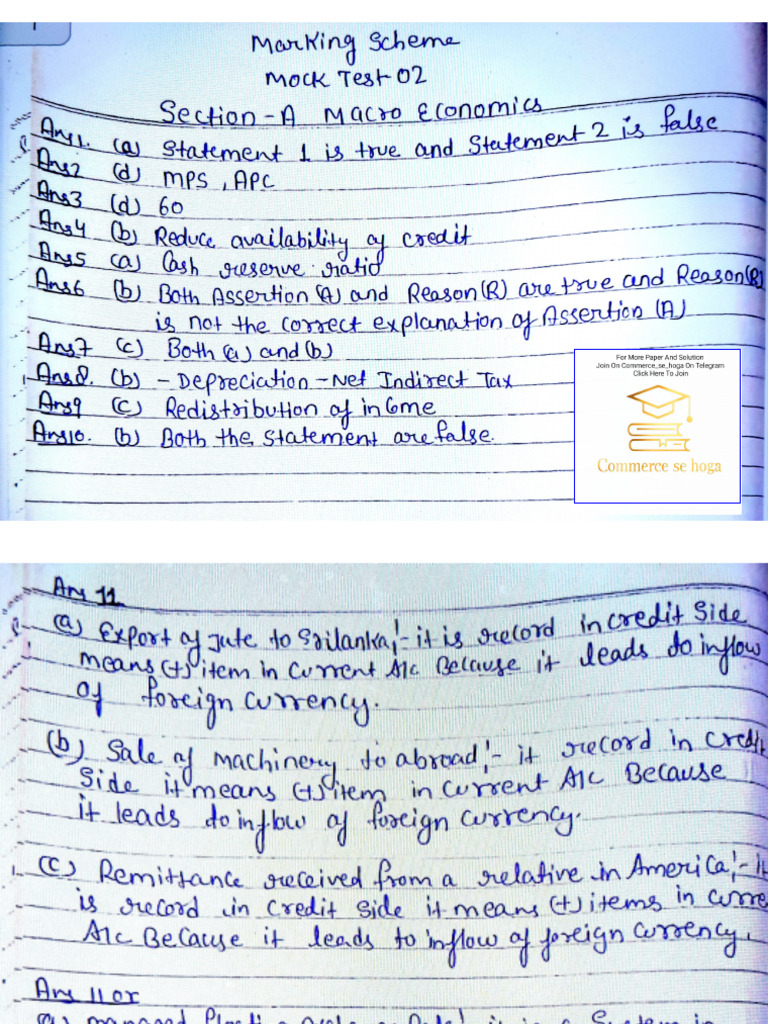 1
Marking Scheme
Mock Test-02
Section-A Macro Economics
Ans1. (a) Statement 1 is true and Statement 2 is false
Ans2 (d) MPS, APC
Ans3 (d) 60
Ans4 (b) Reduce availability of credit
Ans5 (a) Cash reserve ratio
Ans6 (b) Both Assertion (A) and Reason(R) are true and Reason(R)
is not the correct explanation of Assertion (A)
Ans7 (c) Both (a) and (b)
Ans8. (b) - Depreciation - Net Indirect Tax
Ans9 (c) Redistribution of income
Ans10. (b) Both the statement are false.
For More Paper And Solution
Join On Commerce_se_hoga On Telegram
Click Here To Join
Commerce se hoga
Ans 11
(a) Export of Jute to Srilanka!- it is record in credit Side
means (+) item in current A/c Because it leads to inflow
of foreign currency.
(b) Sale of machinery to abroad!- it record in credit
Side it means (+) item in current A/c Because
it leads to inflow of foreign currency.
(c) Remittance received from a relative in America!- it
is record in credit side it means (+) items in curre
A/c Because it leads to inflow of foreign currency.
Ans 11 or
(a) managed